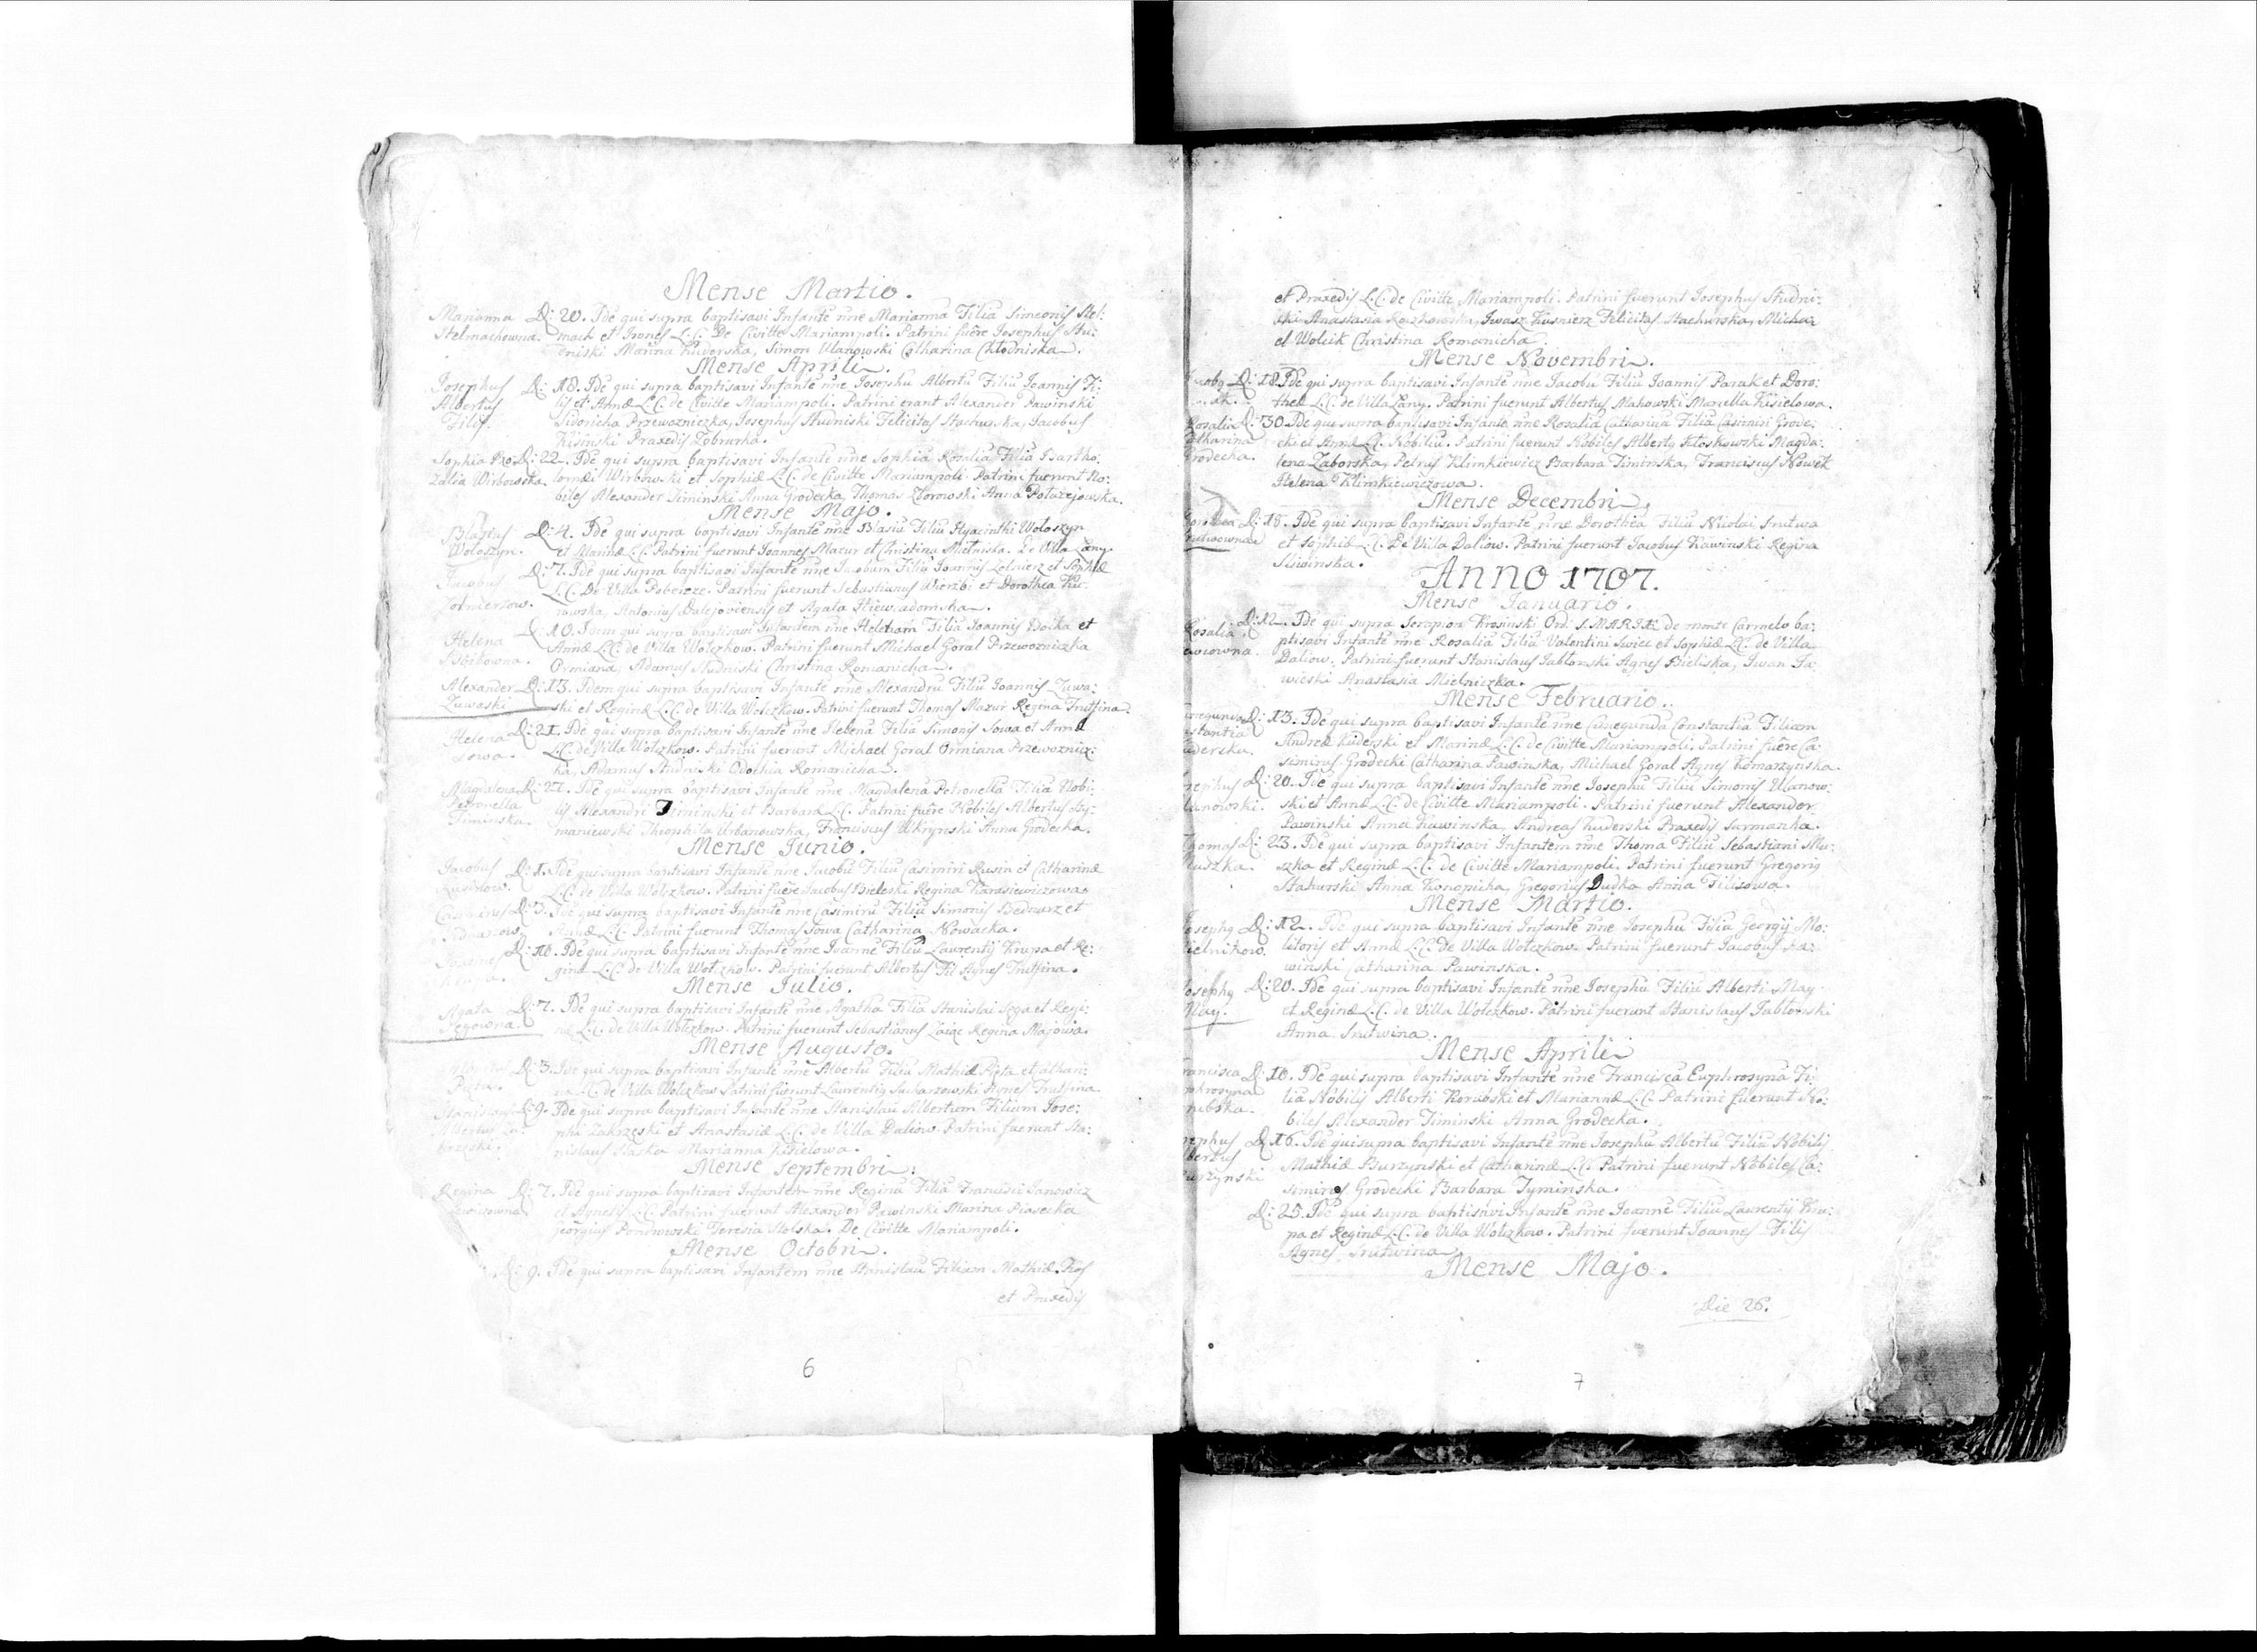 Mense Martio.
Marianna D: 20. Idē qui supra baptisavi Infantē nne Marianna Filia Simeonis Stel:
Stelmachowna. mach et Irones L.C. De Civitte Mariampoli. Patrini fuēre Josephus Stu:
dniski Marina Kuderska, Simon Ulanowski Catharina Chłodniska.
Mense Aprili.
Josephus D: 18. Idē qui supra baptisavi Infantē nne Josephū Albertū Filiū Joannis Fi:
Albertus lis et Annæ L.C. de Civitte Mariampoli. Patrini erant Alexander Pawinski
Filis. Sidoricha Przewozniczka, Josephus Studniski Felicitas Stachurska, Jacobus
Kisinski Praxedis Zoburka.
Sophia Ro D: 22. Idē qui supra baptisavi Infantē nne Sophia Rosalia Filia Bartho:
zalia Wirbowska. lomæi Wirbowski et Sophiæ L.C. de Civitte Mariampoli. Patrini fuerunt No:
biles Alexander Siminski Anna Grodecka, Thomas Zborowski Anna Potuzejowska.
Mense Majo.
Blasius D: 4. Idē qui supra baptisavi Infantē nne Blasiū Filiū Hyacinthi Wołoszyn
Wołoszyn. et Marinæ L.C. Patrini fuerunt Joannes Mazur et Christina Mielniska. De Villa Łany.
Jacobus D: 7. Idē qui supra baptisavi Infantē nne Jacobum Filiū Joannis Zolnierz et Sophiæ
Zolnierzow. L.C. De Villa Pobereze. Patrini fuerunt Sebastianus Wierzbi et Dorothea Kur:
rowska, Antonius Dalejoviensis et Agata Niewiadomska.
Helena D: 10. Idem qui supra baptisavi Infantem nne Helenam Filia Joannis Boika et
Annæ L.C. de Villa Wołczkow. Patrini fuerunt Michael Goral Przewozniczka
Ormiana, Adamus Studniski Christina Romanicha.
Alexander D: 13. Idem qui supra baptisavi Infantē nne Alexandrū Filiū Joannis Zuwa:
Zuwaski ski et Reginæ L.C. de Villa Wołczkow. Patrini fuerunt Thomas Mazur Regina Trutfina.
Helena D: 21. Idē qui supra baptisavi Infantē nne Helena Filia Simonis Sowa et Annæ
Sowa. L.C. de Villa Wołczkow. Patrini fuerunt Michael Goral Ormiana Przewoznicz:
ka, Adamus Studniski Odothia Romanicha.
Magdalena D: 27. Idē qui supra baptisavi Infantē nne Magdalena Petronella Filia Nobi:
Petronella lis Alexandri Timinski et Barbaræ L.C. Patrini fuēre Nobiles Albertus Szy:
Timinska. maniewski Theophila Urbanowska, Franciscus Ukrynski Anna Grodecka.
Mense Junio.
Jacobus D: 1. Idē qui supra baptisavi Infantē nne Jacobū Filiū Casimiri Rusin et Catharinæ
Rusinow. L.C. de Villa Wołczkow. Patrini fuēre Jacobus Bieleski Regina Karasiewiczowa.
Casimirus D: 3. Idē qui supra baptisavi Infantē nne Casimirū Filiū Simonis Bednarz et
Annæ L.C. Patrini fuerunt Thomas Sowa Catharina Nowacka.
Joannes D: 16. Idē qui supra baptisavi Infantē nne Joannē Filiū Laurentij Krupa et Re:
ginæ L.C. de Villa Wołczkow. Patrini fuerunt Albertus Fil Agnes Trutfina.
Mense Julio.
Agata D: 7. Idē qui supra baptisavi Infantē nne Agatha Filia Stanislai Szga et Regi:
næ L.C. de Villa Wołczkow. Patrini fuerunt Sebastianus Zaiąc Regina Majowa.
Mense Augusto.
D: 3. Idē qui supra baptisavi Infantē nne Albertū Filiū Mathiæ Pięta et Cathari:
Pięta. næ L.C. de Villa Wołczkow Patrini fuerunt Laurentig Sucharzowski Agnes Trutfina.
Stanislaus D: 9. Idē qui supra baptisavi Infantē nne Stanislau Albertum Filium Jose:
Albertus Za: phi Zakrzeski et Anastasiæ L.C. de Villa Daliow. Patrini fuerunt Sta:
krzeski. nislaus Kaska Marianna Kisielowa.
Mense Septembri.
Regina D: 7. Idē qui supra baptisavi Infantem nne Regina Filia Francisci Janowicz
et Agnetis L.C. Patrini fuerunt Alexander Pawinski Marina Piasecka
Georgius Teresia Stolska. De Civitte Mariampoli.
Mense Octobri.
D: 9. Idē qui supra baptisavi Infantem nne Stanislau Filium Mathiæ Kos
et Praxedis
6
et Praxedis L.C. de Civitte Mariampoli. Patrini fuerunt Josephus Studni:
ski Anastasia Kuszkowska, Iwasz Kusnierz Felicitas Stachurska, Micha:
el Wolcik Christina Romanicha.
Mense Novembri.
D: 18. Idē qui supra baptisavi Infantē nne Jacobū Filiū Joannis Parak et Doro:
theæ L.C. de Villa Łany. Patrini fuerunt Albertus Makowski Marella Kisielowa.
Rosalia D: 30. Idē qui supra baptisavi Infantē nne Rosalia Catharina Filia Casimiri Grode:
Catharina cki et Annæ L.C. Nobiliū. Patrini fuerunt Nobiles Albertg Kłoskowski Magda:
Grodecka. lena Zaborska, Petrus Klimkiewicz Barbara Timinska, Franciscus Nowek
Helena Klimkiewiczowa.
Mense Decembri.
D: 18. Idē qui supra baptisavi Infantē nne Dorothea Filiū Nicolai Srutwa
et Sophiæ L.C. De Villa Daliow. Patrini fuerunt Jacobus Kawinski Regina
Sliwinska.
Anno 1707.
Mense Januario.
Rosalia D: 12. Idē qui supra Serapion Krosinski Ord. S. MARIÆ de monte Carmelo ba:
ptisavi Infantē nne Rosalia Filia Valentini Swiec et Sophiæ L.C. de Villa
Daliow. Patrini fuerunt Stanislaus Jabłonski Agnes Bieliska, Iwan Sa:
wicski Anastasia Mielniczka.
Mense Februario.
D: 13. Idē qui supra baptisavi Infantē nne Cunegunda Constantia Filiam
Andreæ Kuderski et Marinæ L.C. de Civitte Mariampoli, Patrini fuēre Ca:
simirus Grodecki Catharina Pawinska, Michael Goral Agnes Komarzynska.
D: 20. Idē qui supra baptisavi Infantē nne Josephū Filiū Simonis Ulanow:
ski et Annæ L.C. de Civitte Mariampoli. Patrini fuerunt Alexander
Pawinski Anna Kawinska, Andreas Kuderski Praxedis Surmanka.
Thomas D: 23. Idē qui supra baptisavi Infantem nne Thoma Filiū Sebastiani Mu:
Muszka. szka et Reginæ L.C. de Civitte Mariampoli. Patrini fuerunt Gregorig
Stahurski Anna Konopicka, Gregorius Dudka Anna Filisowa.
Mense Martio.
Josephg D: 12. Idē qui supra baptisavi Infantē nne Josephū Filiū Georgij Mo:
litoris et Annæ L.C. de Villa Wołczkow. Patrini fuerunt Jacobus Ka:
winski Catharina Pawinska.
Josephg D: 20. Idē qui supra baptisavi Infantē nne Josephū Filiū Alberti May
May. et Reginæ L.C. de Villa Wołczkow. Patrini fuerunt Stanislaus Jabłonski
Anna Srutwina.
Mense Aprili
D: 10. Idē qui supra baptisavi Infantē nne Francisca Euphrosyna Fi:
lia Nobilis Alberti Korubski et Mariannæ L.C. Patrini fuerunt No:
biles Alexander Timinski Anna Grodecka.
D: 16. Idē qui supra baptisavi Infantē nne Josephū Albertū Filiū Nobilis
Mathiæ Burzynski et Catharinæ L.C. Patrini fuerunt Nobiles Ca:
simirus Grodecki Barbara Tyminska.
D: 25. Idē qui supra baptisavi Infantē nne Joannē Filiū Laurentij Kru:
pa et Reginæ L.C. de Villa Wołczkow. Patrini fuerunt Joannes Filis
Agnes Srutwina.
Mense Majo.
Die 26.
7